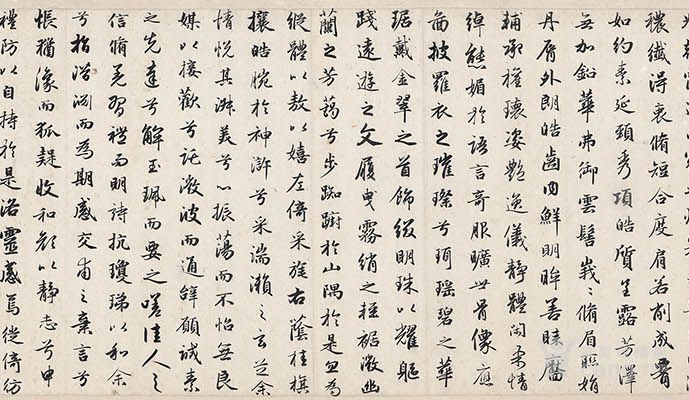 穠纖得衷脩短合度肩若削成腰
如約素延頸秀項皓質呈露芳澤
無加鉛華弗御雲髻峩〻脩眉聯娟
丹脣外朗皓齒内鮮明眸善睞靨
輔承權瓌姿豔逸儀靜體閑柔情
綽態媚於語言奇服曠世骨像應
圖披羅衣之璀璨兮珥瑤碧之華
琚戴金翠之首飾綴明珠以耀軀
踐遠遊之文履曳霧綃之輕裾微幽
蘭之芳藹兮步踟躕於山隅於是忽焉
縱體以敖以嬉左倚采旄右蔭桂旗
攘皓腕於神滸兮采湍瀨之玄芝余
情悅其淑美兮心振蕩而不怡無良
媒以接歡兮託微波而通辭願誠素
之先達兮解玉珮而要之嗟佳人之
信脩羌習禮而明詩抗瓊珶以和余
兮指潛淵而為期感交甫之棄言兮
悵猶豫而狐疑收和顏以靜志兮申
禮防以自持於是洛靈感焉徙倚彷